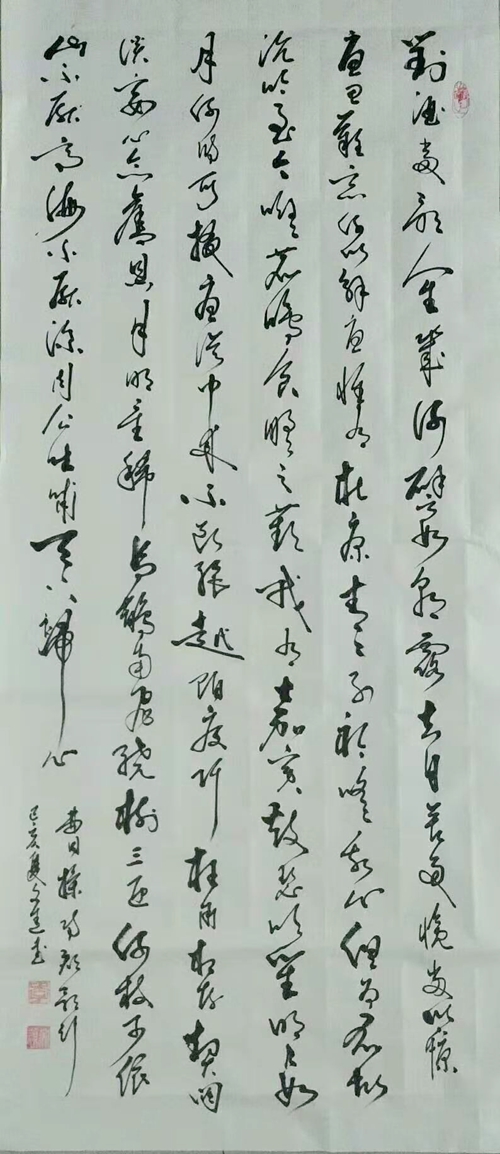 對酒當歌人生幾何譬如朝露去日苦多慨當以慷
憂思難忘何以解憂惟有杜康青青子衿悠悠我心但為君故
沉吟至今呦呦鹿鳴食野之蘋我有嘉賓鼓瑟吹笙明明如
月何時可掇憂從中來不斷絕越陌度阡枉用相存契闊
談讌心念舊恩月明星稀烏鵲南飛繞樹三匝何枝可依
山不厭高海不厭深周公吐哺天下歸心
曹操詩短歌行
己亥夏書